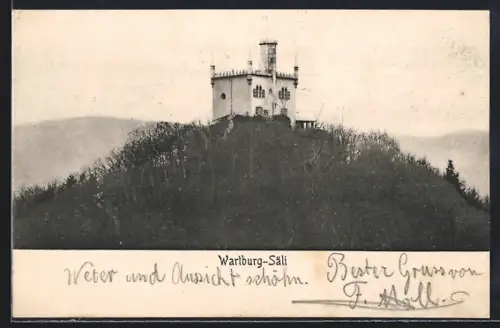 Wartburg-Säli
Weter und Aussicht schöhn.
Bester Gruss von
F. Moll.